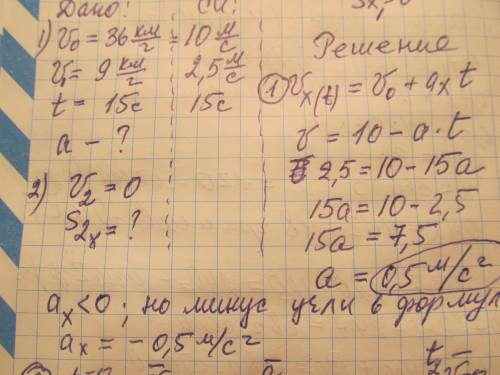 Дано: СИ:
1) V₀ = 36 км/г = 10 м/с
V₁ = 9 км/г 2,5 м/с
t = 15с 15с
a - ?
2) V₂ = 0
S₂ₓ = ?
Решение
① Vx(t) = V₀ + axt
V = 10 - a·t
2,5 = 10 - 15a
15a = 10 - 2,5
15a = 7,5
a = 0,5 м/с²
ax < 0 ; но минус учли в форму
ax = - 0,5 м/с²